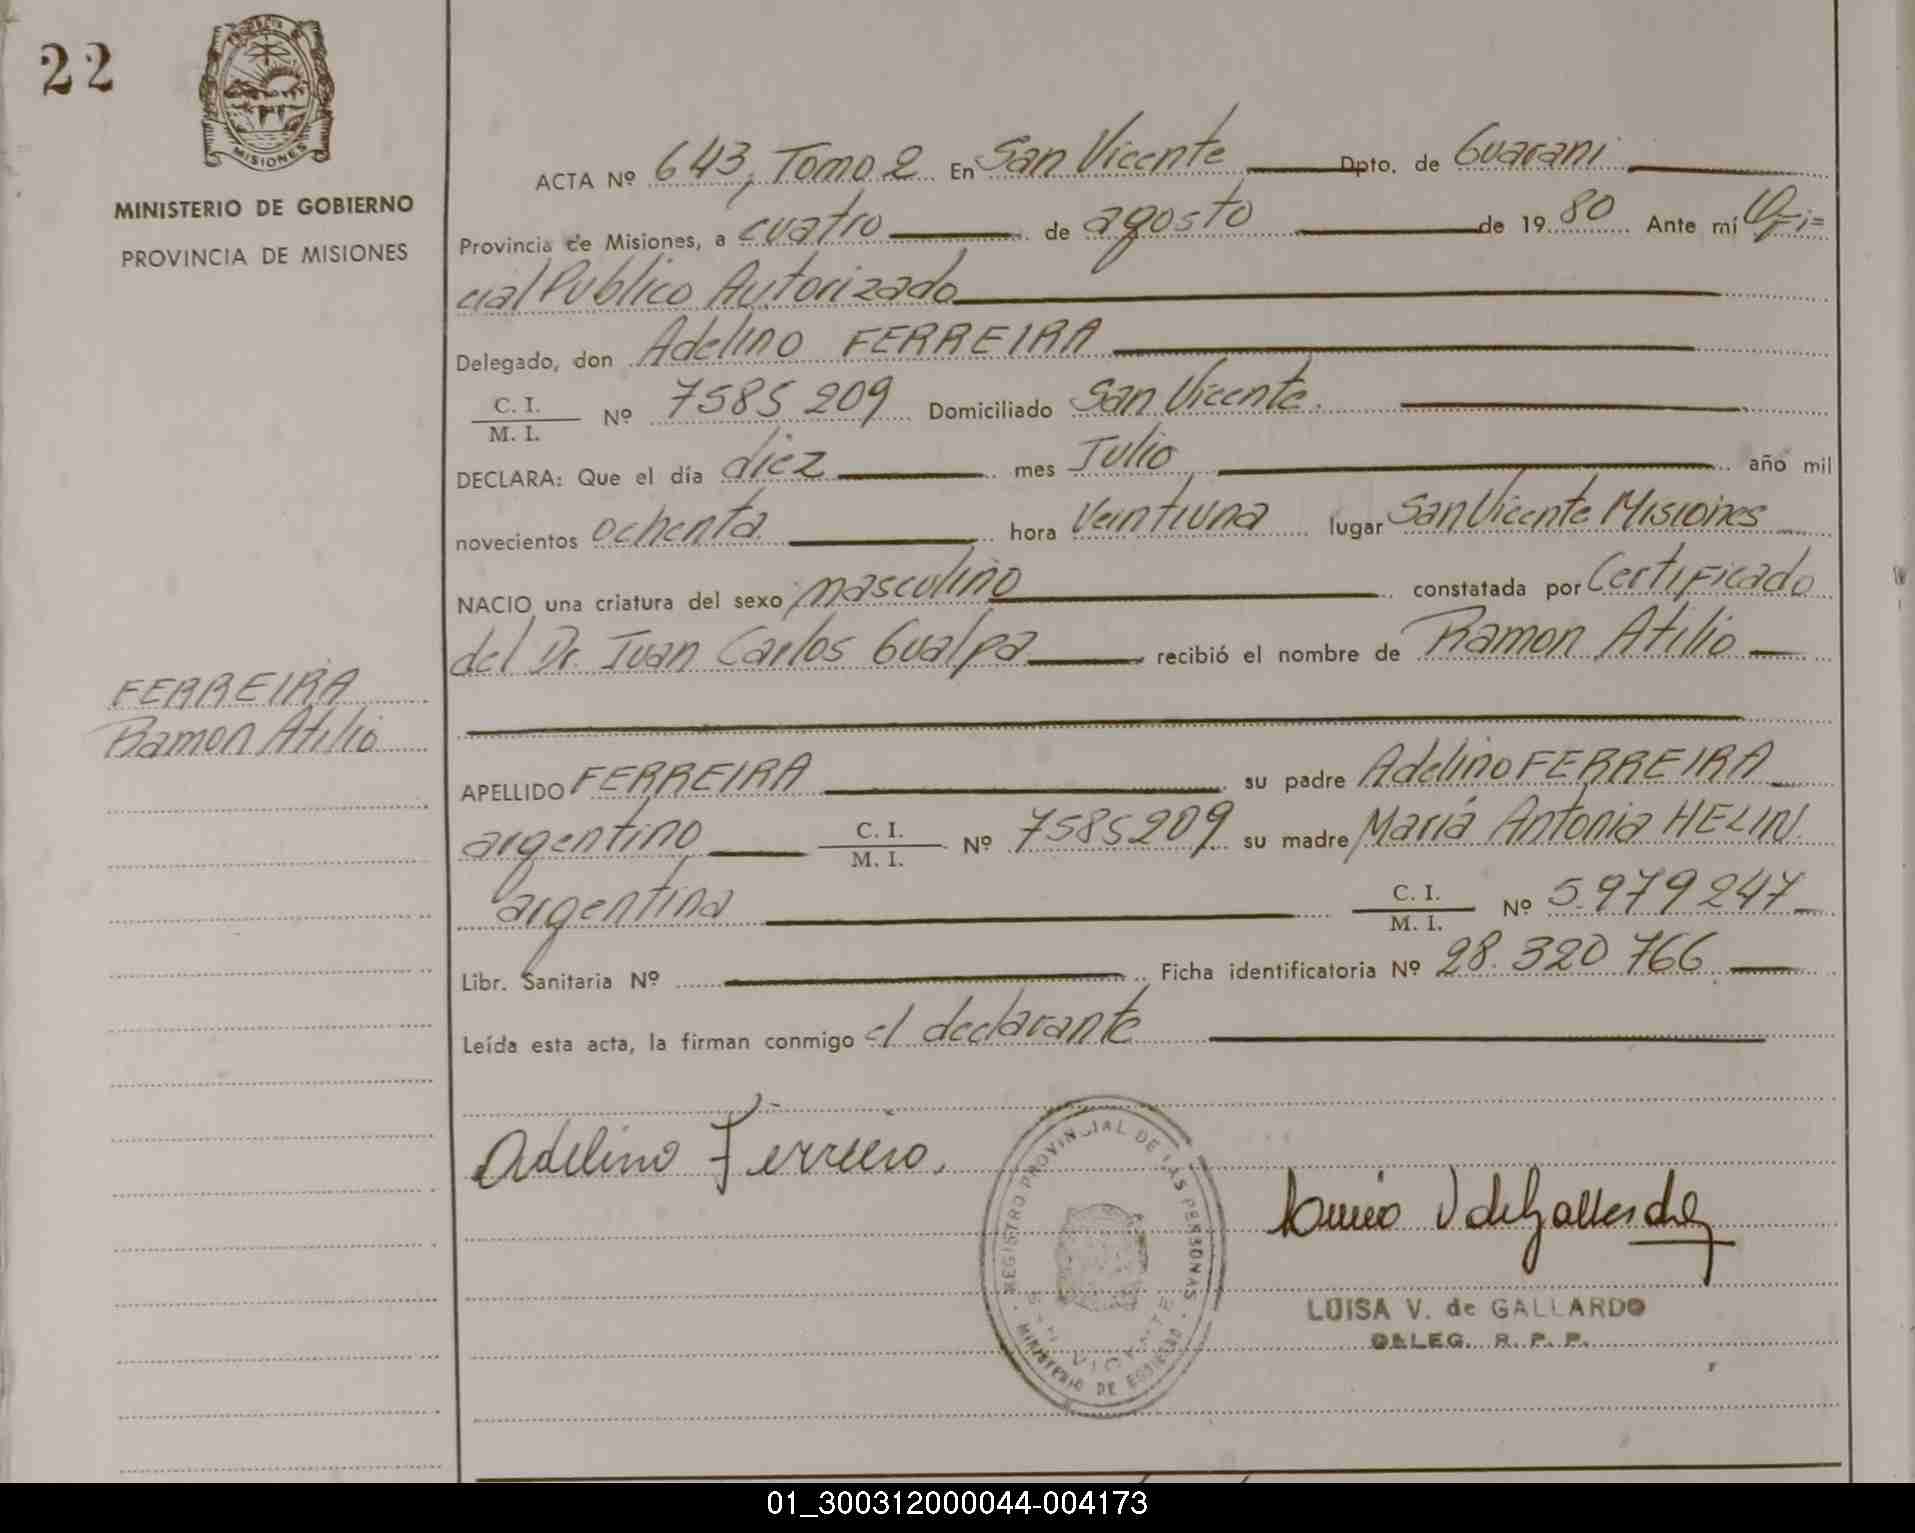 22
MISIONES
MINISTERIO DE GOBIERNO
PROVINCIA DE MISIONES
FERREIRA
Ramon Atilio
ACTA Nº 643, Tomo 2 En San Vicente Dpto. de Guarani
Provincia de Misiones, a cuatro de agosto de 1980 Ante mí Ofi=
cial Publico Autorizado
Delegado, don Adelino FERREIRA
C. I. / M. I. Nº 7585209 Domiciliado San Vicente.
DECLARA: Que el día diez mes Julio año mil
novecientos ochenta hora Veintiuna lugar San Vicente Misiones
NACIO una criatura del sexo masculino constatada por Certificado
del Dr. Juan Carlos Gualpa recibió el nombre de Ramon Atilio
APELLIDO FERREIRA su padre Adelino FERREIRA
argentino C. I. / M. I. Nº 7585209 su madre Mariá Antonia HELIN.
argentina C. I. / M. I. Nº 5979247
Libr. Sanitaria Nº Ficha identificatoria Nº 28.320766
Leída esta acta, la firman conmigo el declarante
Adelino Ferreira.
REGISTRO PROVINCIAL DE LAS PERSONAS
SAN VICENTE
MINISTERIO DE GOBIERNO
LUISA V. de GALLARDO
DELEG. R. P. P.
01_300312000044-004173